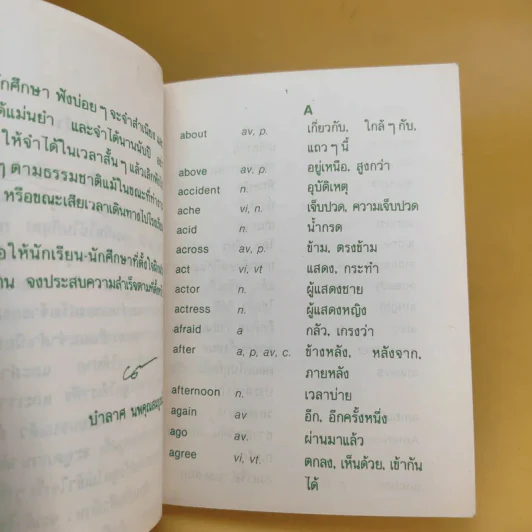 นักศึกษา ฟังบ่อยๆ จะจำสำเนียง และ
ได้แม่นยำ และจำได้นานนับปี
ให้จำได้ในเวลาสั้นๆ แล้วเลิกฟัง
ๆ ตามธรรมชาติแม้ในขณะที่ทำงาน
หรือขณะเสียเวลาเดินทางไปโรงเรียน
ให้นักเรียน-นักศึกษาที่ตั้งใจ
จงประสบความสำเร็จตามที่
A
about av, p. เกี่ยวกับ, ใกล้ๆ กับ,
แถวๆ นี้
above av, p. อยู่เหนือ, สูงกว่า
accident n. อุบัติเหตุ
ache vi, n. เจ็บปวด, ความเจ็บปวด
acid n. น้ำกรด
across av, p. ข้าม, ตรงข้าม
act vi, vt แสดง, กระทำ
actor n. ผู้แสดงชาย
actress n. ผู้แสดงหญิง
afraid a กลัว, เกรงว่า
after a, p, av, c. ข้างหลัง, หลังจาก,
ภายหลัง
afternoon n. เวลาบ่าย
again av อีก, อีกครั้งหนึ่ง
ago av. ผ่านมาแล้ว
agree vi, vt. ตกลง, เห็นด้วย, เข้ากัน
ได้